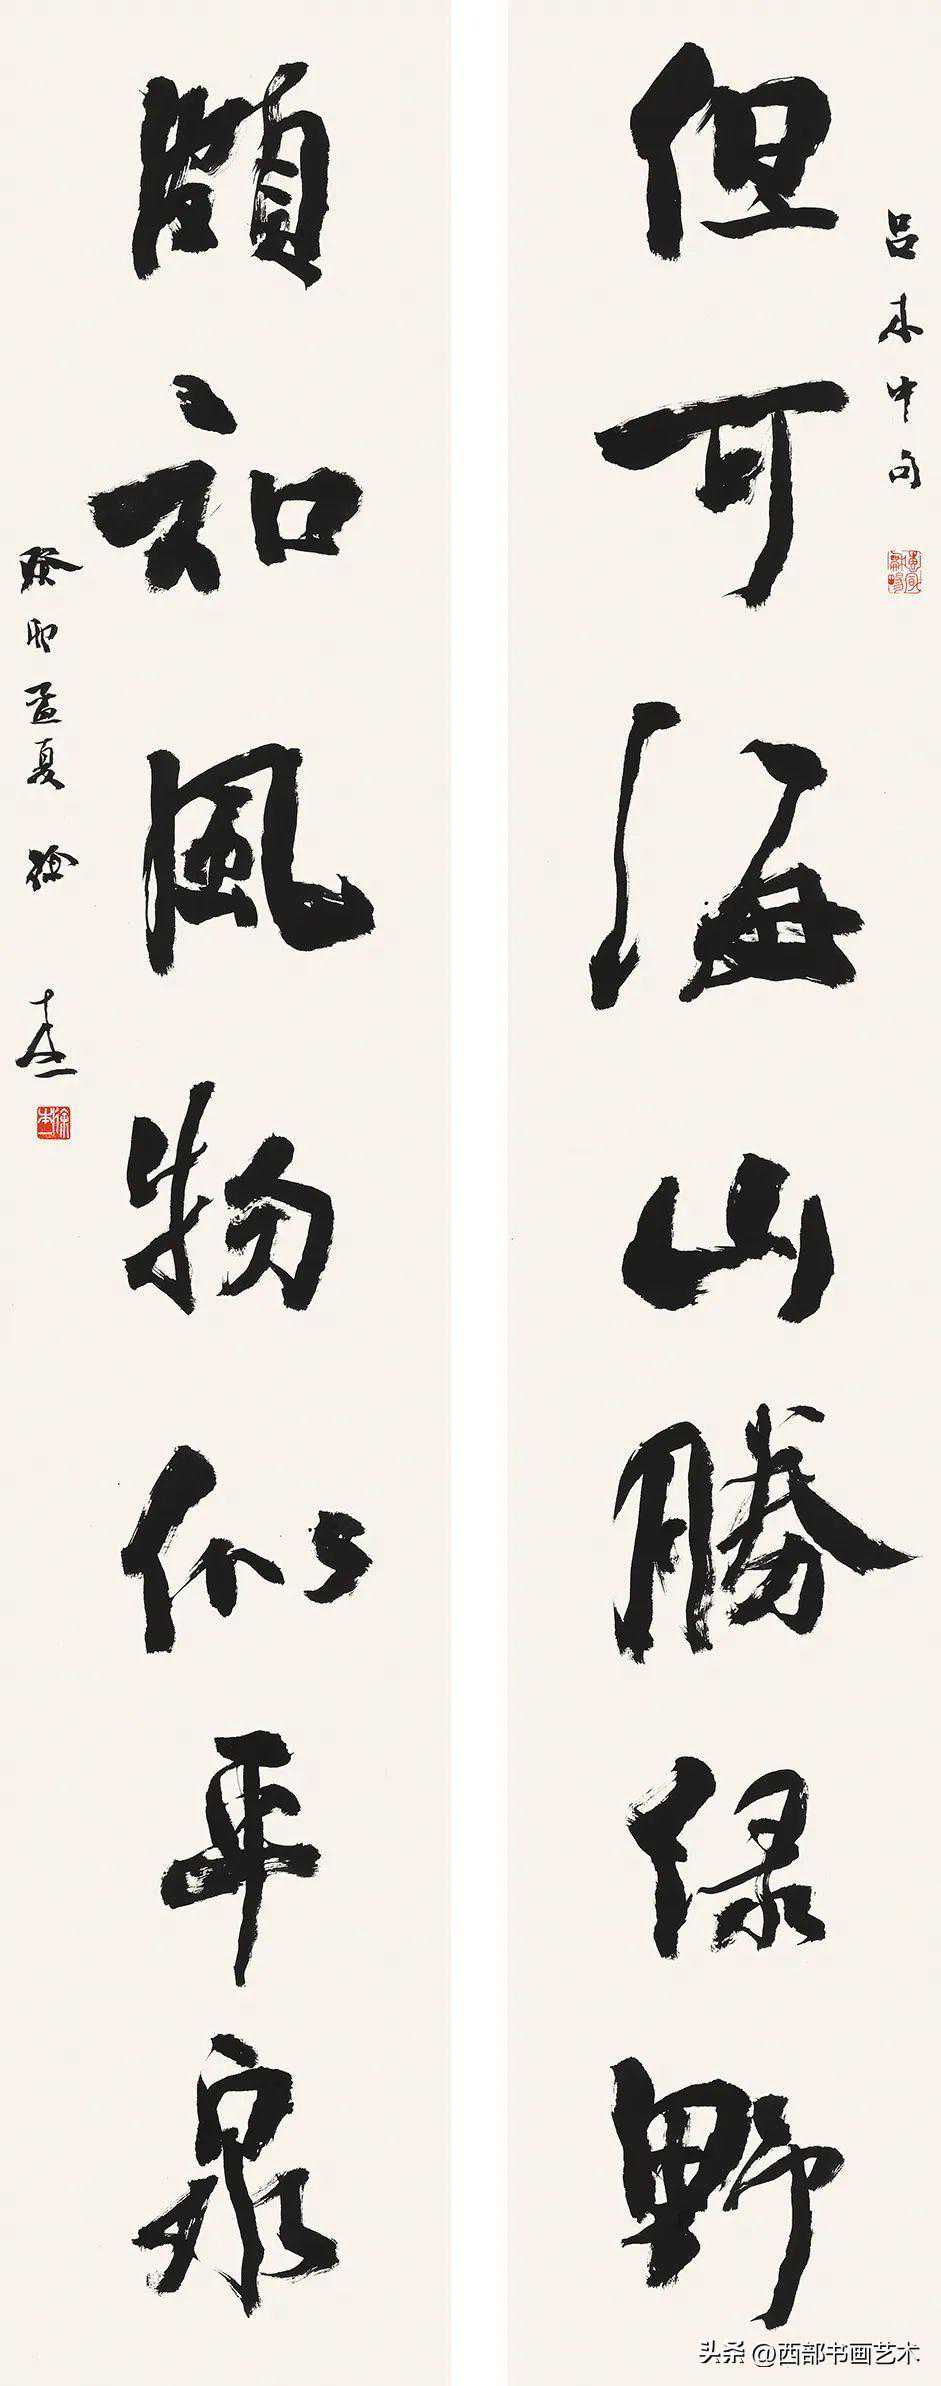 吕本中句
但可海山勝绿野
頗知風物似平泉
癸卯孟夏 徐本一
徐本一
头条 @西部书画艺术